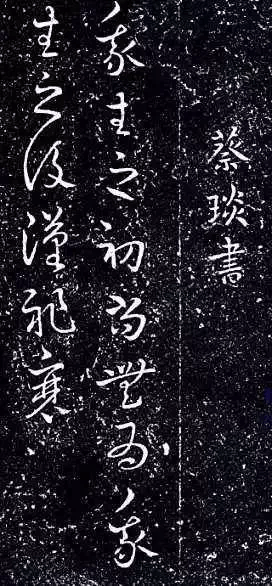 蔡琰書
我生之初尚無為我
生之後漢祚衰